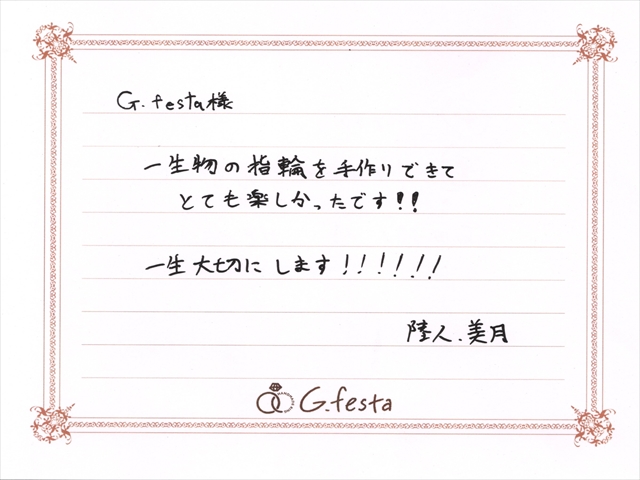 G.festa様
一生物の指輪を手作りできて
とても楽しかったです!!
一生大切にします!!!!!!
陸人.美月
G.festa